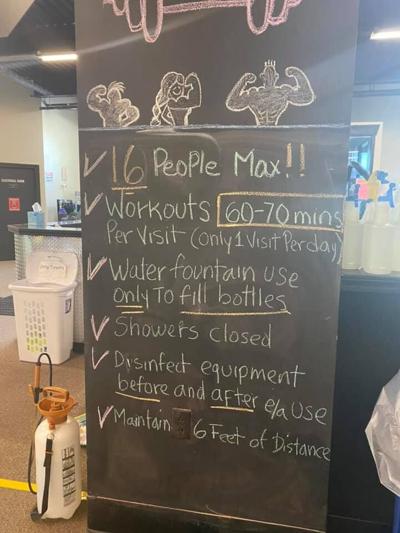 16 People Max!!
Workouts 60-70 mins
Per Visit (Only 1 Visit Per day)
Water fountain use
only To fill bottles
Showers closed
Disinfect equipment
before and after e/a Use
Maintain 6 Feet of Distance